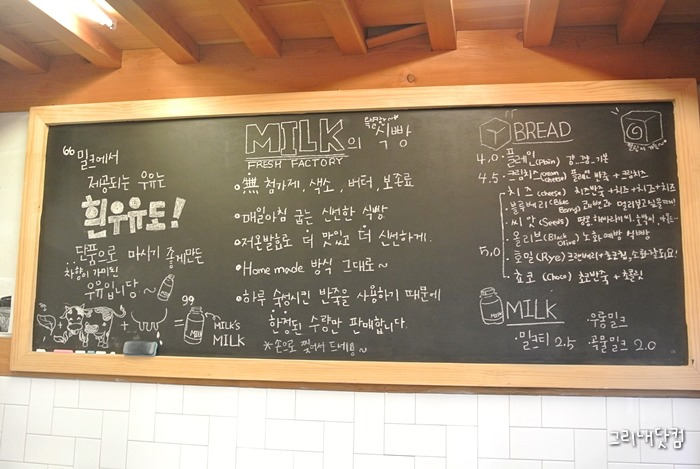 밀크에서
제공되는 우유는
흰우유도!
단풍으로 마시기 좋게만든
차향이 가미된
우유입니다~
MILK'S
MILK
MILK의 식빵
FRESH FACTORY
無 첨가제, 색소, 버터, 보존료
매일아침 굽는 신선한 식빵
저온발효로 더 맛있고 더 신선하게.
Home made 방식 그대로~
하루 숙성시킨 반죽을 사용하기 때문에
한정된 수량만 판매합니다.
*손으로 찢어서 드세용~
BREAD
4,0 플레인(Plain)
4.5 크림치즈(Cream cheese) 플레인 반죽 + 크림치즈
5,0
치즈 (cheese) 치즈반죽+치즈+치즈+치즈
블루베리(Blue Berry)
씨앗(Seeds)
올리브(Black Olive)
호밀(Rye)
초코(Choco) 초코반죽 + 초콜릿
MILK
밀크티 2.5
곡물밀크 2.0
그리내닷컴